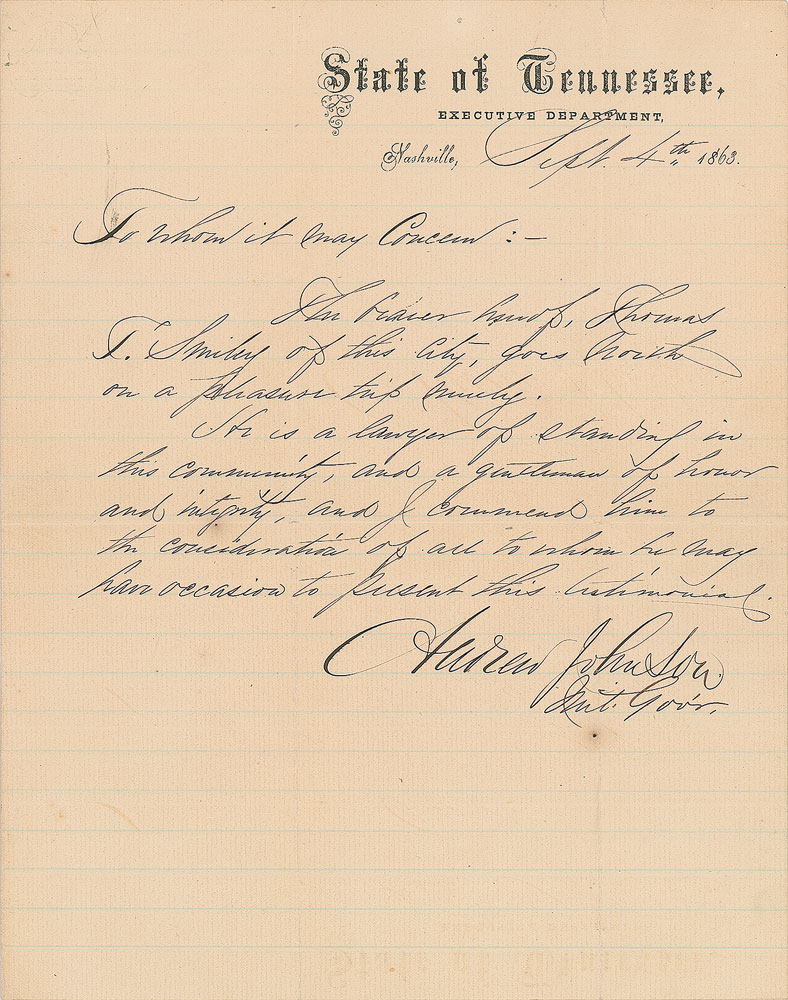 State of Tennessee,
EXECUTIVE DEPARTMENT,
Nashville, Sept. 4th 1863.
To whom it may Concern : —
The bearer hereof, Thomas
T. Smiley of this City, goes North
on a pleasure trip merely.
He is a lawyer of standing in
this community, and a gentleman of honor
and integrity, and I commend him to
the consideration of all to whom he may
have occasion to present this testimonial.
Andrew Johnson
Mil. Gov'r.